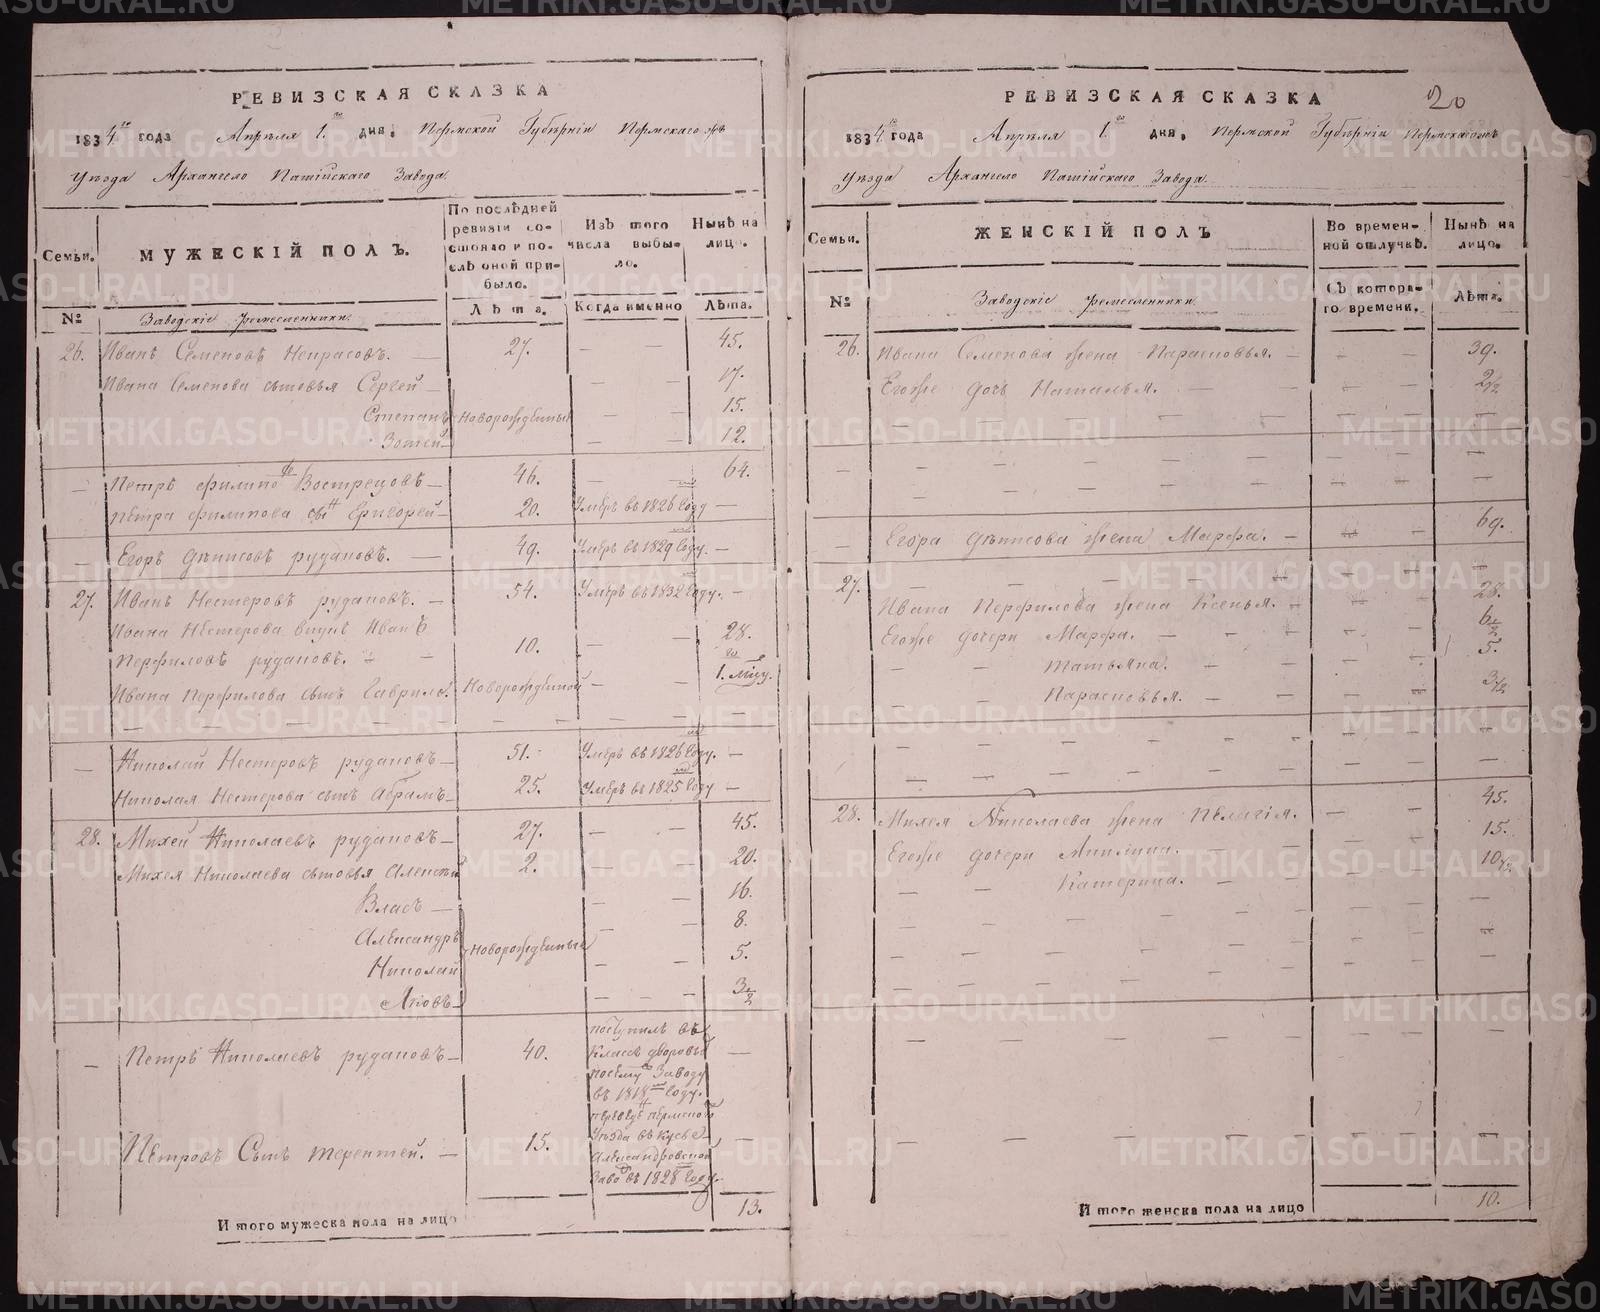 РЕВИЗСКАЯ СКАЗКА
1834го года Апреля 1го дня, Пермской Губерніи Пермскаго
Уѣзда Архангело Пашійскаго Завода.
Семьи.
МУЖЕСКІЙ ПОЛЪ.
По послѣдней ревизіи состояло и послѣ оной прибыло.
Изъ того числа выбыло.
Нынѣ на лицо.
№
Заводскіе ремесленники.
Лѣта.
Когда именно
Лѣта.
26. Иванъ Семеновъ Некрасовъ. — 27. — — 45.
Ивана Семенова сыновья Сергей — — — 17.
Степанъ Новорожденные — — 15.
Зотей — — — 12.
— Петръ Филиповъ Вострецовъ — 46. — — 64.
Петра Филипова сынъ Григорей — 20. Умеръ въ 1826 году —
— Егоръ Денисовъ Рудаковъ. — 49. Умеръ въ 1829 году. —
27. Иванъ Нестеровъ Рудаковъ. — 54. Умеръ въ 1832 году. —
Ивана Нестерова внукъ Иванъ
Перфиловъ Рудаковъ. — 10. — — 28.
Ивана Перфилова сынъ Гаврило. Новорожденной — — 1. мцу.
— Николай Нестеровъ Рудаковъ — 51. Умеръ въ 1826 году. —
Николая Нестерова сынъ Абрамъ — 25. Умеръ въ 1825 году —
28. Михей Николаевъ Рудаковъ — 27. — — 45.
Михея Николаева сыновья Алексей 2. — — 20.
Власъ — — — 16.
Александръ — — 8.
Николай Новорожденные — — 5.
Яковъ — — — 3½
— Петръ Николаевъ Рудаковъ — 40. поступилъ въ
класъ дворовы
по сему Заводу
въ 1818 году.
Петровъ Сынъ Терентей. — 15. переведенъ Пермскаго
Уѣзда въ Кусье
Александровской
Заводъ въ 1828 году.
И того мужеска пола на лицо 13.
20
РЕВИЗСКАЯ СКАЗКА
1834го года Апреля 1го дня, Пермской Губерніи Пермскаго
Уѣзда Архангело Пашійскаго Завода.
Семьи.
ЖЕНСКІЙ ПОЛЪ
Во временной отлучкѣ.
Нынѣ на лицо.
№
Заводскіе ремесленники.
Съ котораго времени.
Лѣта.
26. Ивана Семенова жена Парасковья. — — — 39.
Егоже дочь Наталья. — — — 2½
Егора Денисова жена Марфа. — — — 69.
27. Ивана Перфилова жена Ксенья. — — — 28.
Егоже дочери Марфа. — — — 6½
Татьяна. — — — 5.
Парасковья. — — — 3½
28. Михея Николаева жена Пелагія. — — 45.
Егоже дочери Акилина. — — — 15.
Катерина. — — — 10½
И того женска пола на лицо 10.